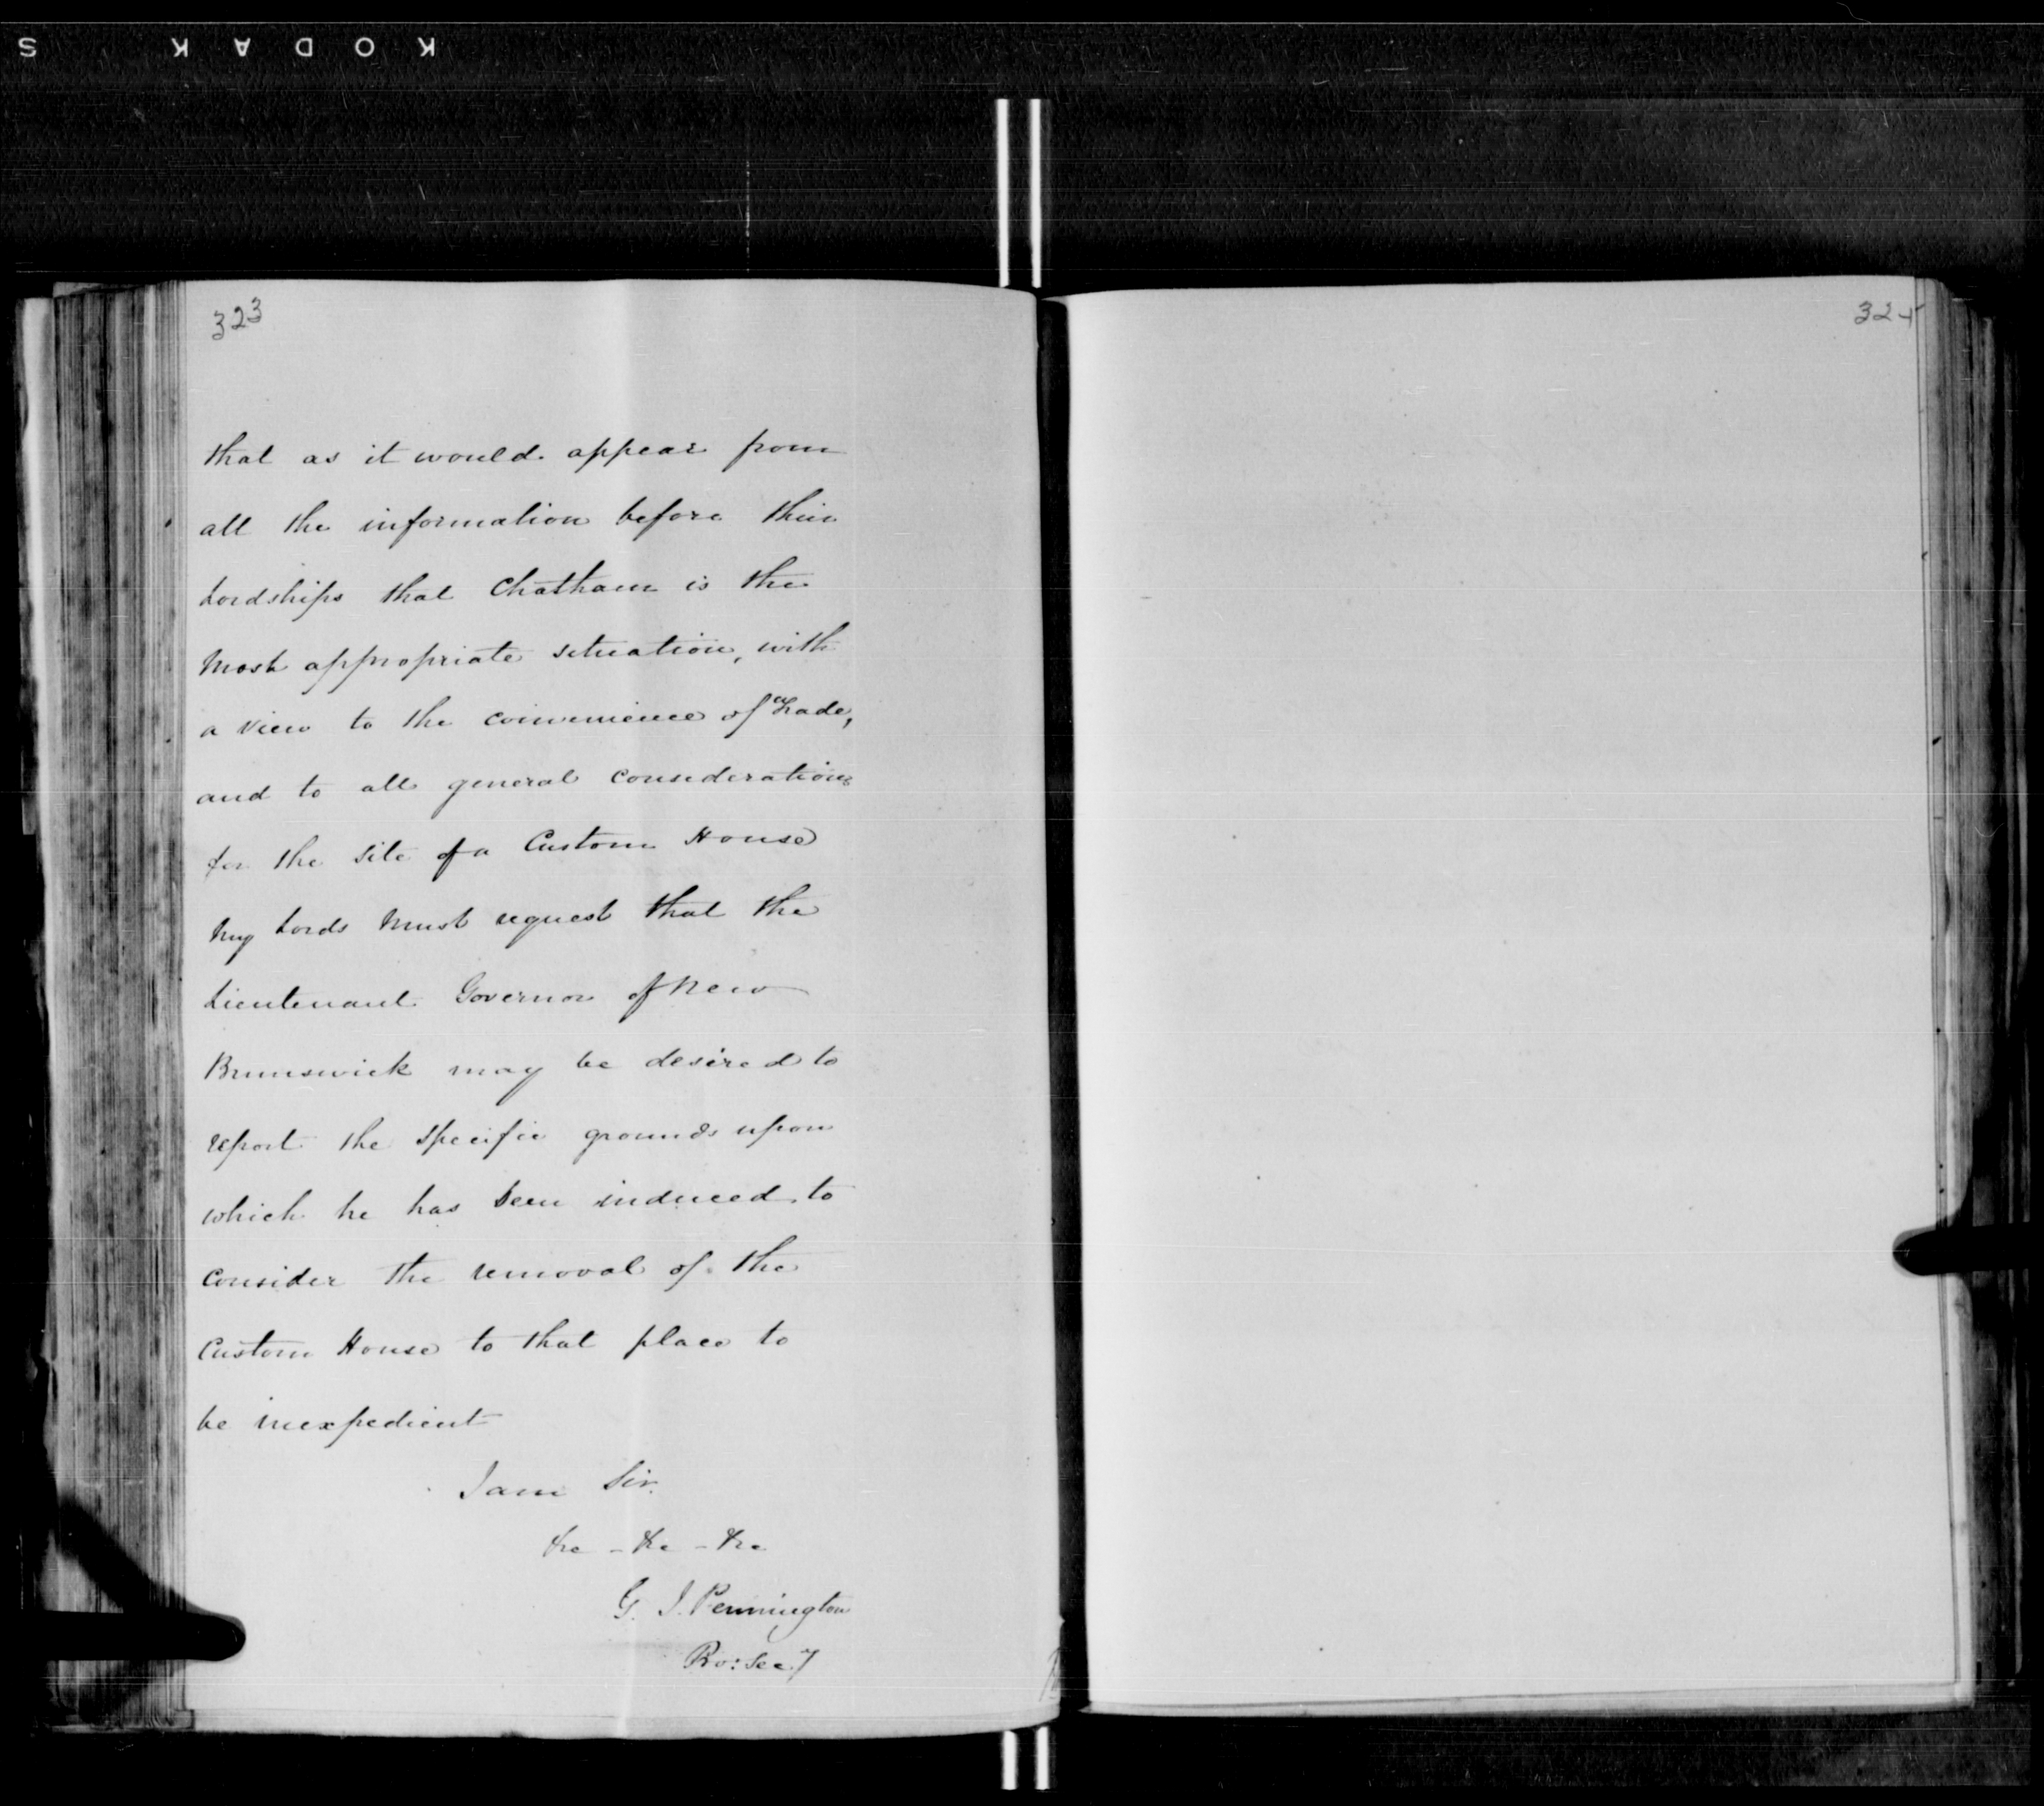 KODAK S
323
that as it would appear from
all the information before their
Lordships that Chatham is the
most appropriate situation, with
a view to the convenience of Trade,
and to all general considerations
for the site of a Custom House
My Lords must request that the
Lieutenant Governor of New
Brunswick may be desired to
report the specific grounds upon
which he has been induced to
consider the removal of the
Custom House to that place to
be inexpedient
I am Sir.
&c - &c - &c
G. J. Pennington
Pro: Secy
324